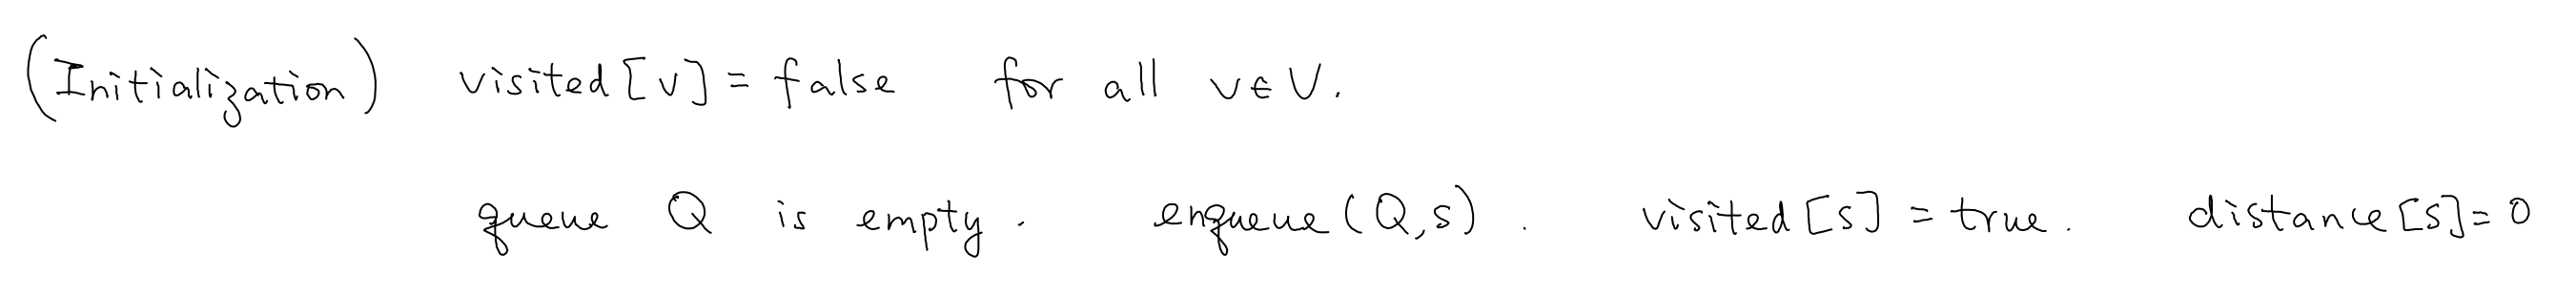 (Initialization) visited[v] = false for all v ∈ V.
queue Q is empty. enqueue(Q,s). visited[s] = true. distance[s] = 0